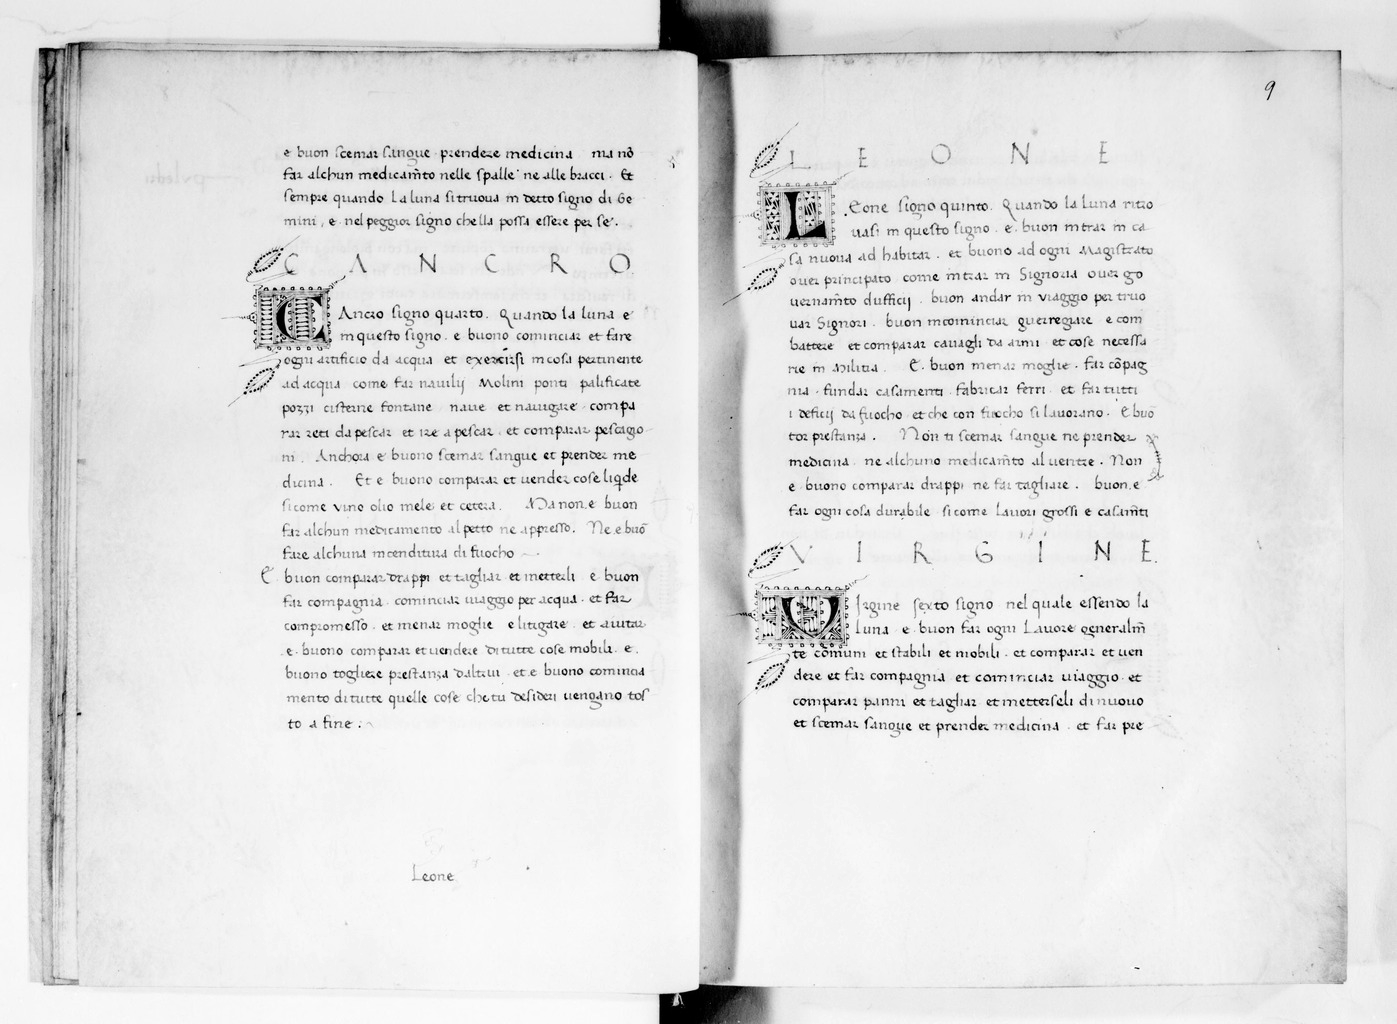 e buon scemar sangue prendere medicina ma nō
far alchun medicam̄to nelle spalle ne alle bracci. Et
sempre quando la luna si truova in detto signo di Ge
mini, e nel peggior signo che lla possa essere per se.
CANCRO
CAncro signo quarto. Quando la luna e
in questo signo. e buono cominciar et fare
ogni artificio da acqua et exercirsi in cosa pertinente
ad acqua come far navilij Molini ponti palificate
pozzi cisterne fontane nave et navigare compa
rar reti da pescar et ire a pescar. et comparar pescagio
ni. Anchora e buono scemar sangue et prender me
dicina. Et e buono comparar et vender cose liqde
si come vino olio mele et cetera. Ma non. e buon
far alchun medicamento al petto ne appresso. Ne. e buō
fare alchuna incenditura di fuocho
E buon comparar drappi et tagliar et metterli e buon
far compagnia cominciar viaggio per acqua. et far
compromesso. et menar moglie e litigare. et aiutar
.e. buono comparar et vendere di tutte cose mobili. e.
buono togliere prestanza d'altrui. et. e buono comincia
mento di tutte quelle cose che tu desideri vengano tos
to a fine.
Leone
9
LEONE
LEone signo quinto. Quando la luna ritro
vasi in questo signo. e. buon intrar in ca
sa nuova ad habitar. et buono ad ogni Magistrato
over principato come intrar in Signoria over go
vernam̄to d'ufficij. buon andar in viaggio per truo
var Signori. buon incominciar guerregiare e com
battere et comparar cavagli da armi et cose necessa
rie in Militia. E. buon menar moglie. far cōpag
nia. fundar casamenti fabricar ferri. et far tutti
i deficij da fuocho et che con fuocho si lavorano. E buō
tor prestanza. Non ti scemar sangue ne prender
medicina. ne alchuno medicam̄to al ventre. Non
e. buono comparar drappi ne far tagliare. buon. e
far ogni cosa durabile si come lavori grossi e casam̄ti
VIRGINE.
VIrgine sexto signo nel quale essendo la
luna. e. buon far ogni Lavore generalm̄
te cōmuni et stabili et mobili. et comparar et ven
dere et far compagnia et cominciar viaggio. et
comparar panni et tagliar et metterseli di nuovo
et scemar sangue et prender medicina. et far pre